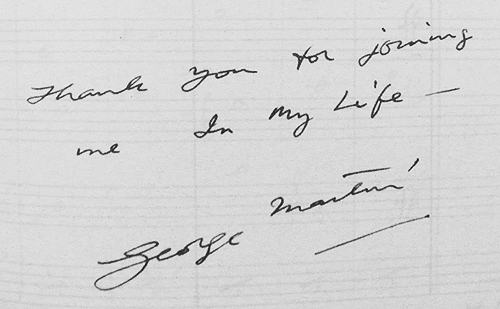 Thank you for joining
me In My Life —
George Martin